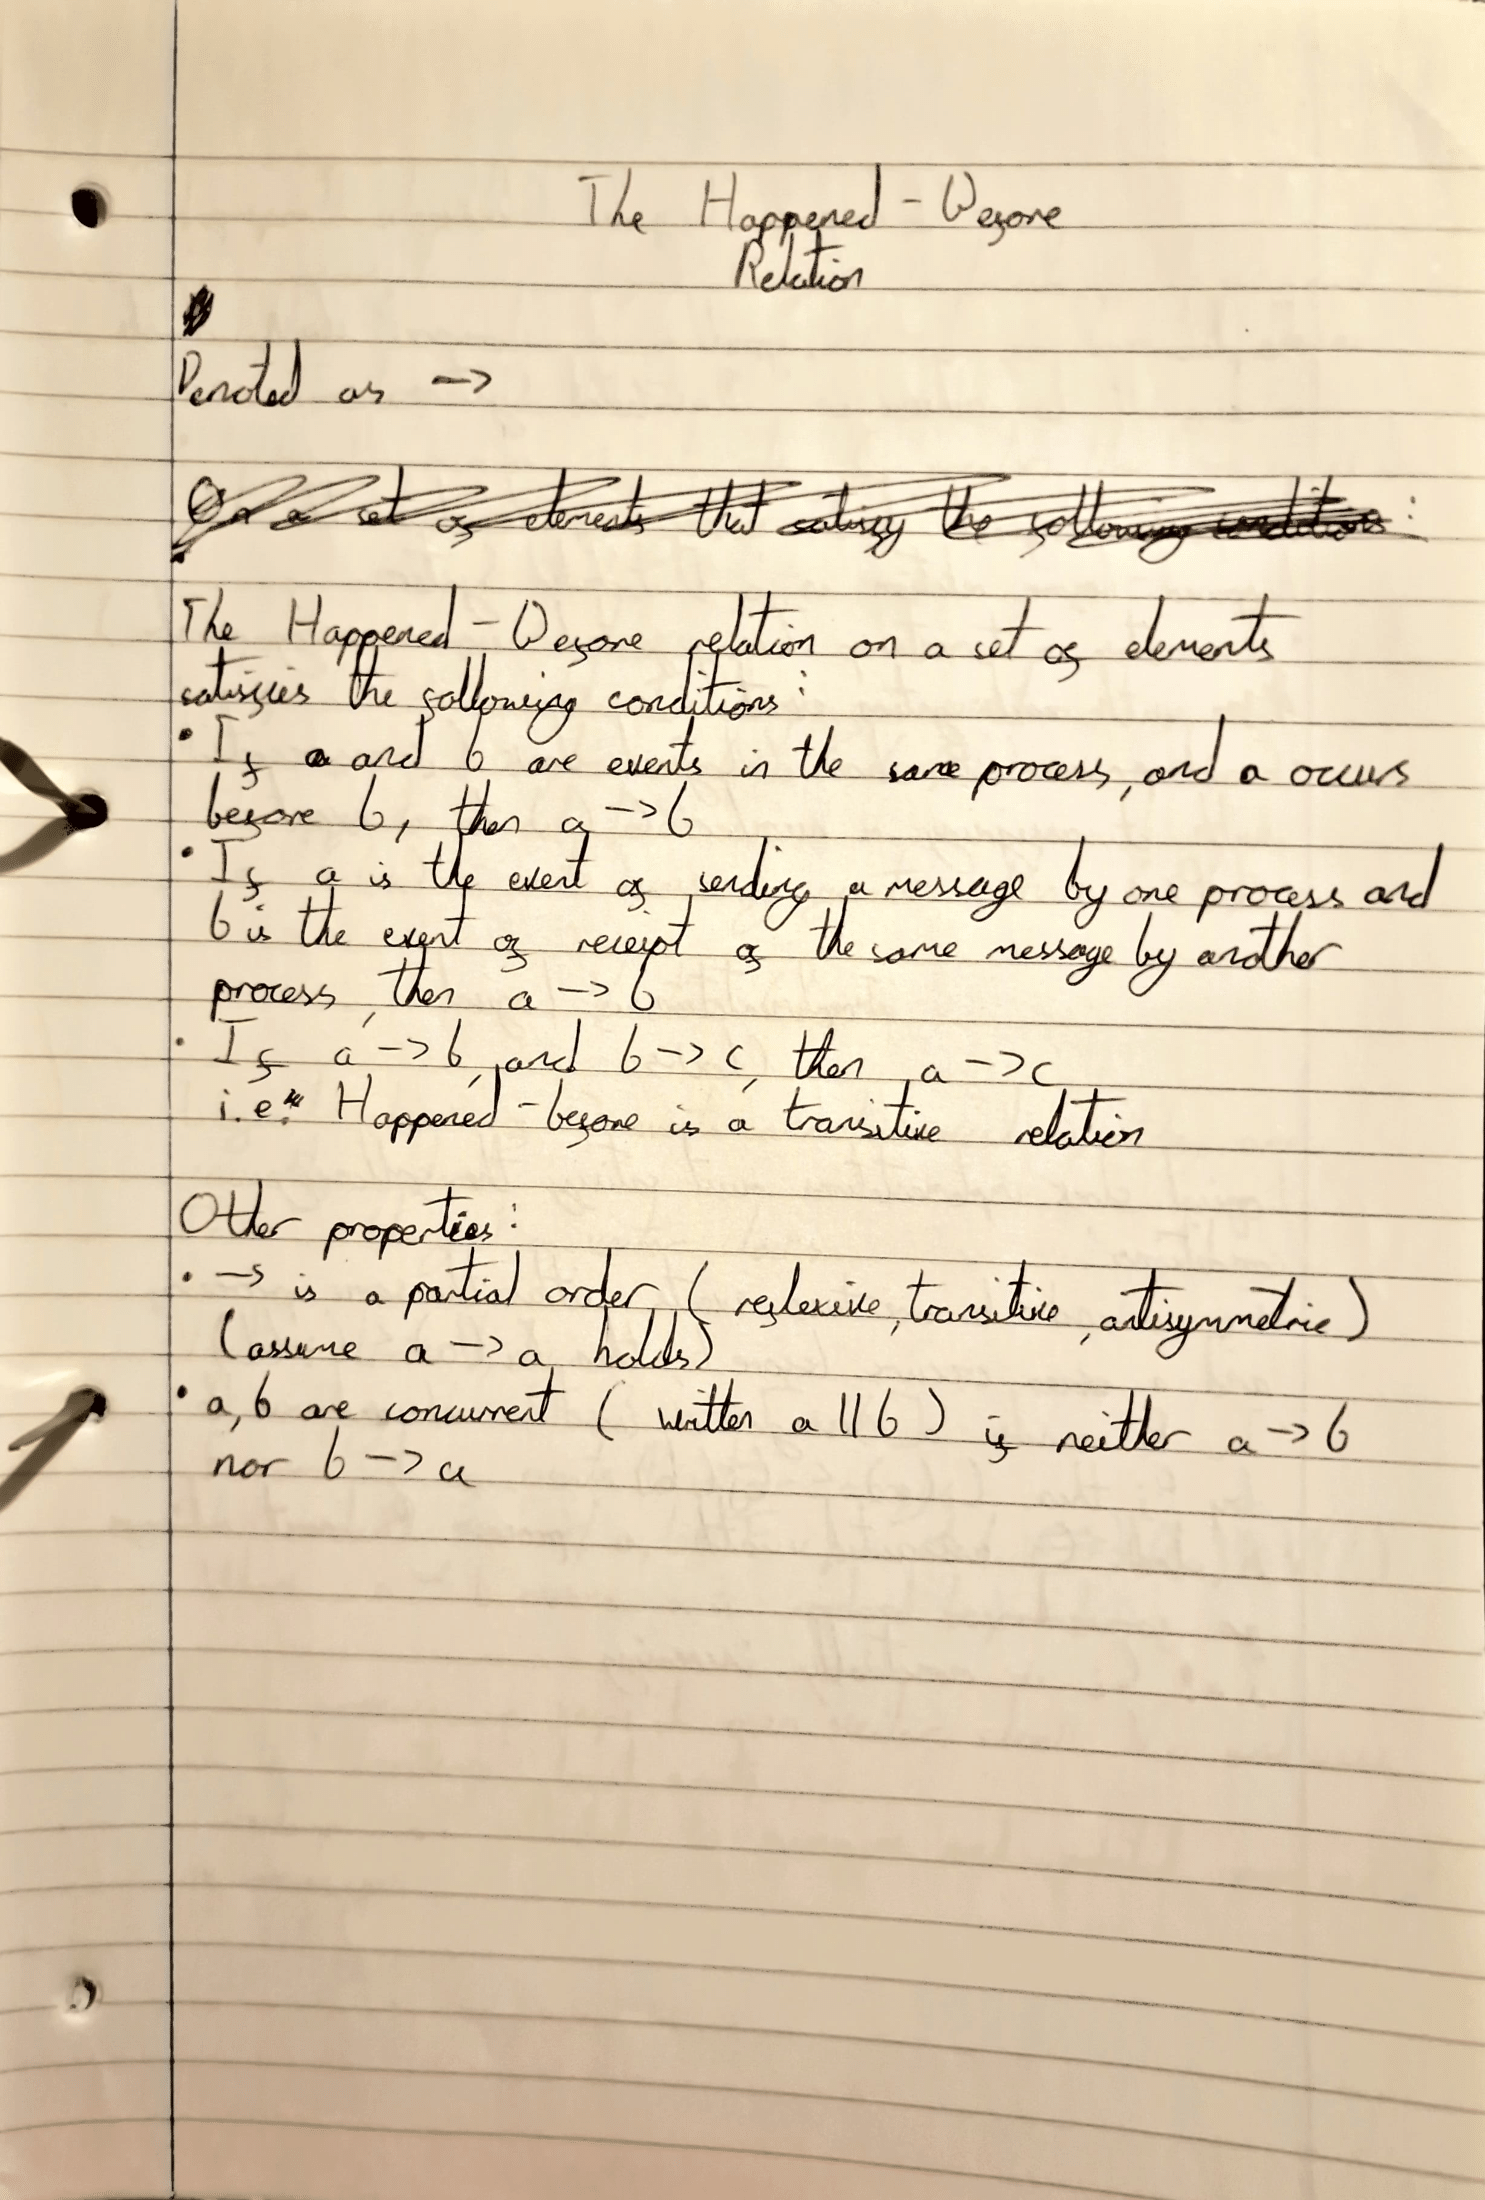 The Happened - Before
Relation
Denoted as ->
On a set of elements that satisfy the following conditions:
The Happened - Before relation on a set of elements
satisfies the following conditions:
• If a and b are events in the same process, and a occurs
before b, then a -> b
• If a is the event of sending a message by one process and
b is the event of receipt of the same message by another
process, then a -> b
• If a -> b, and b -> c, then a -> c
i.e. Happened - before is a transitive relation
Other properties:
• -> is a partial order (reflexive, transitive, antisymmetric)
(assume a -> a holds)
• a, b are concurrent (written a || b) if neither a -> b
nor b -> a